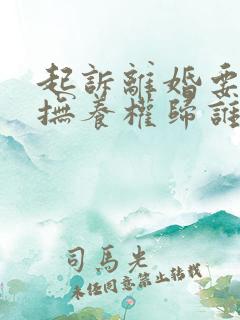 起訴離婚要
撫養權歸誰
司馬光
未經同意禁止轉載